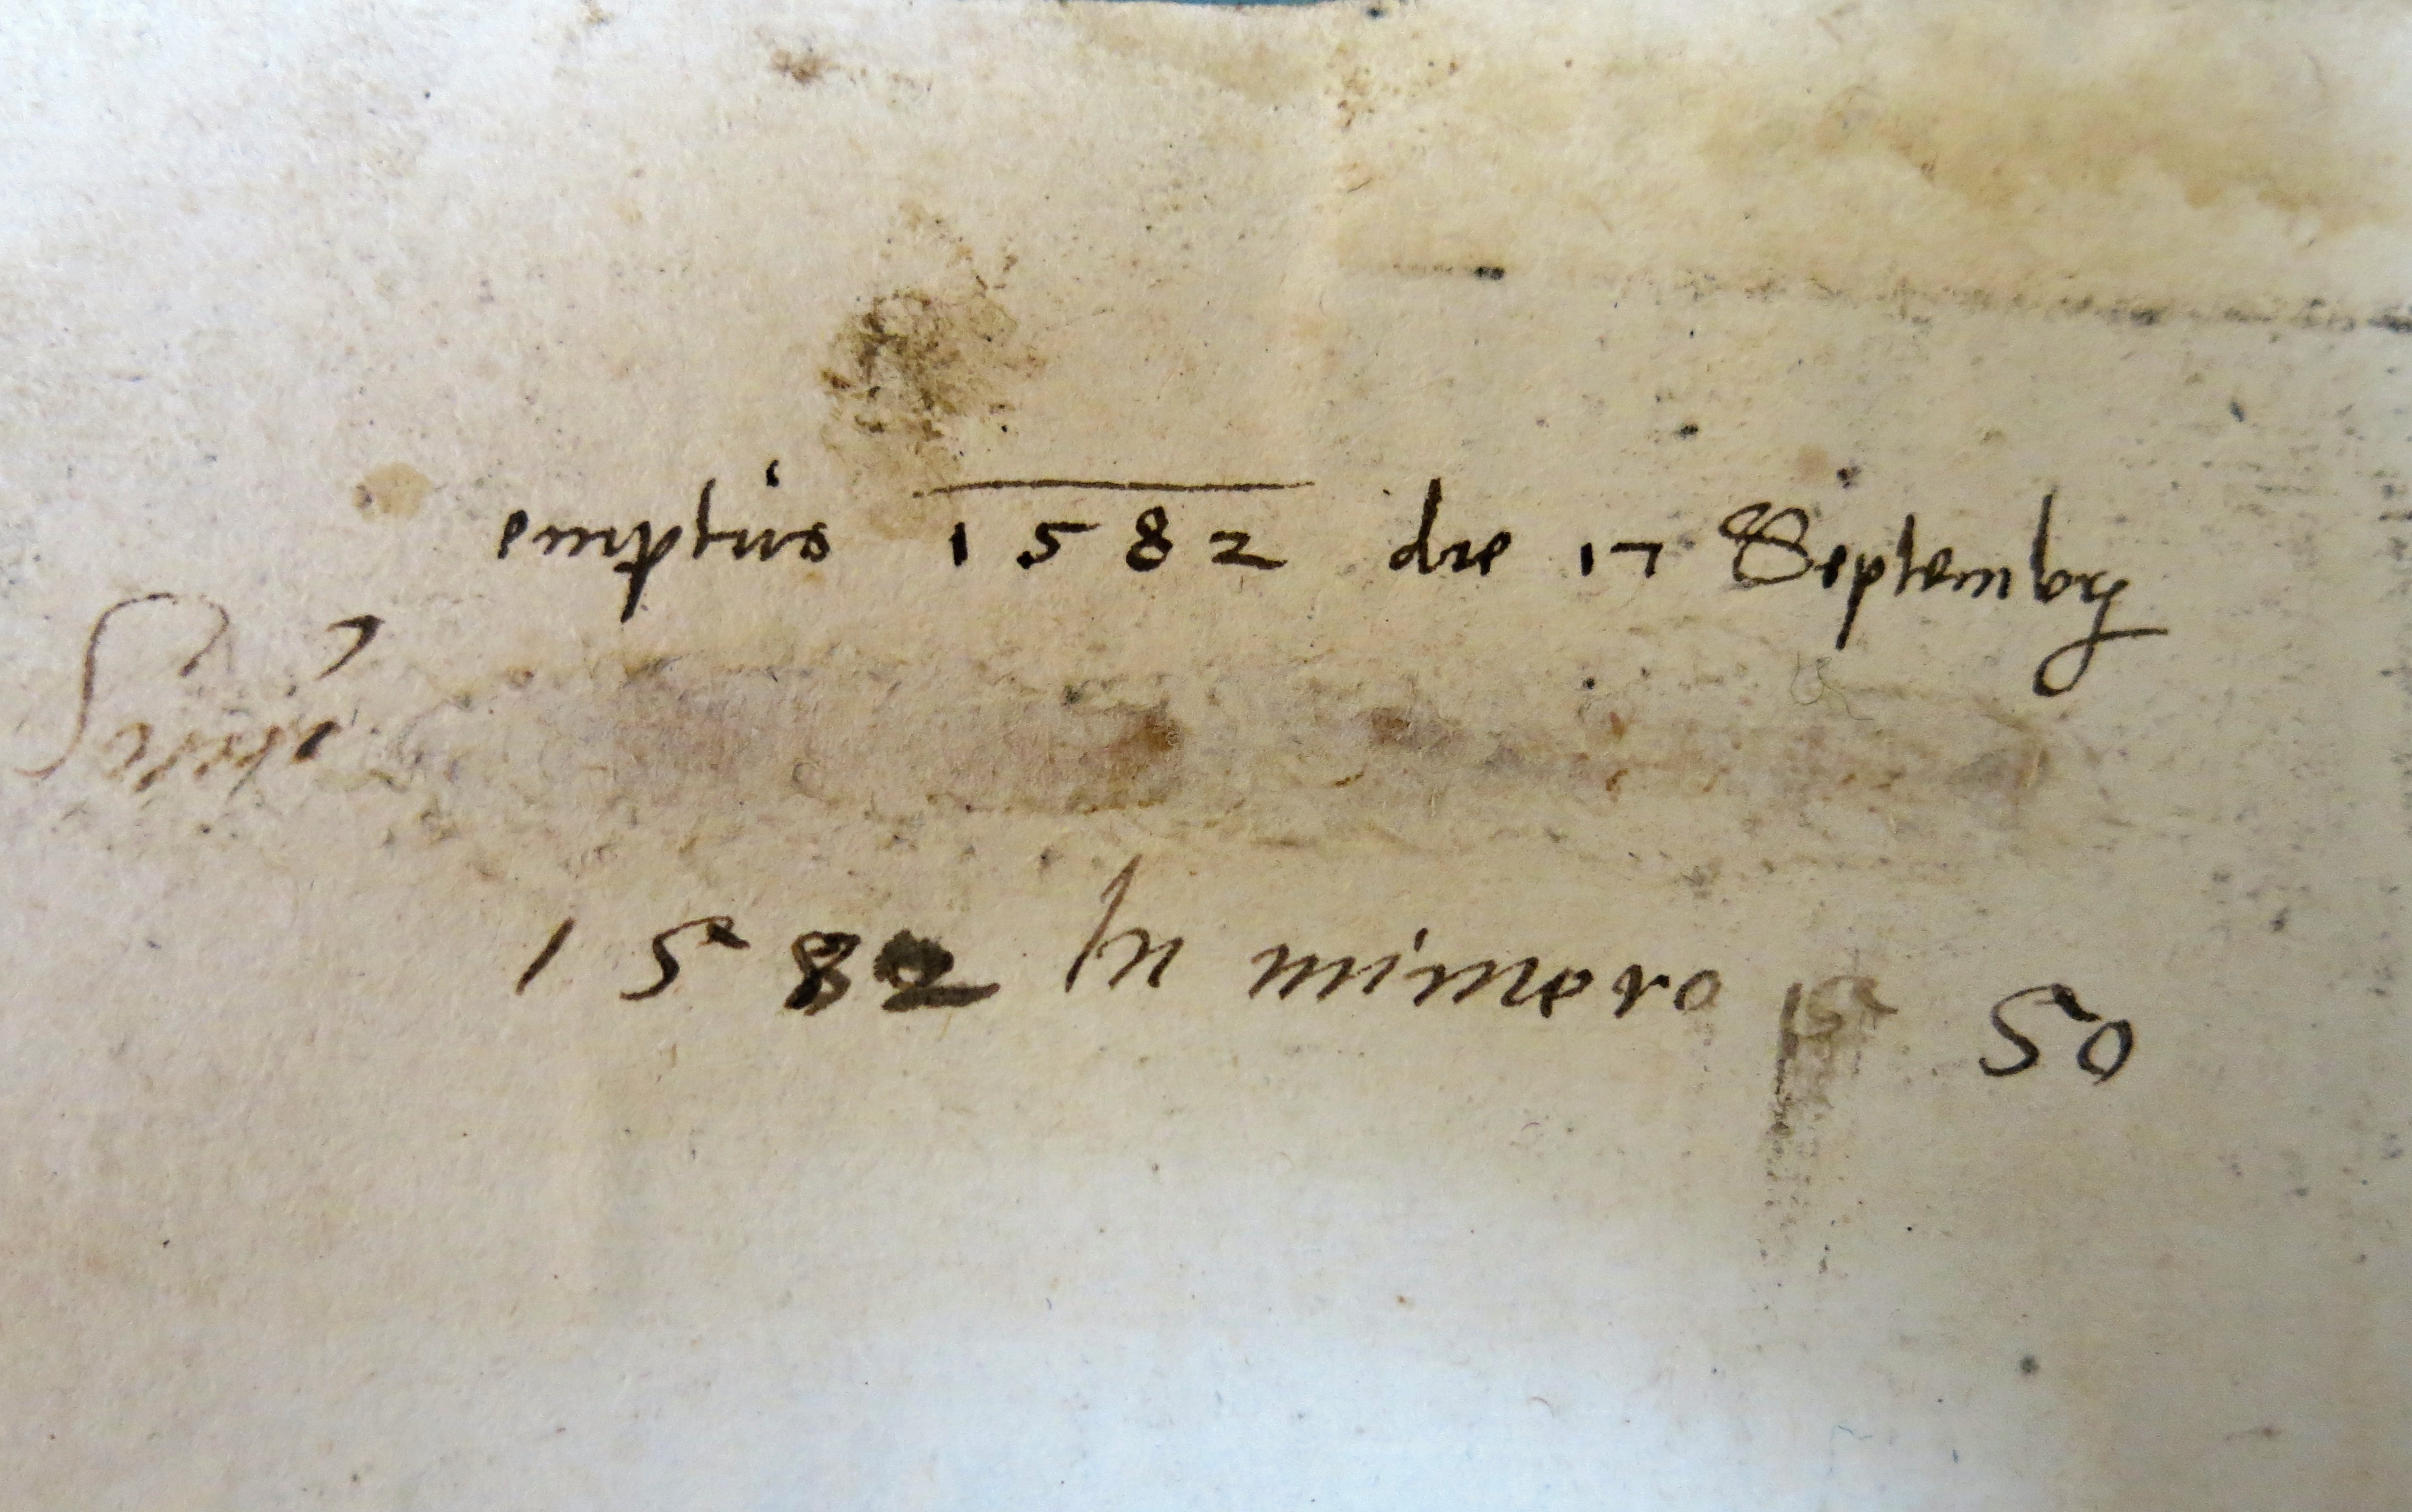 emptus 1582 die 17 Septembr
1582 In numero 50